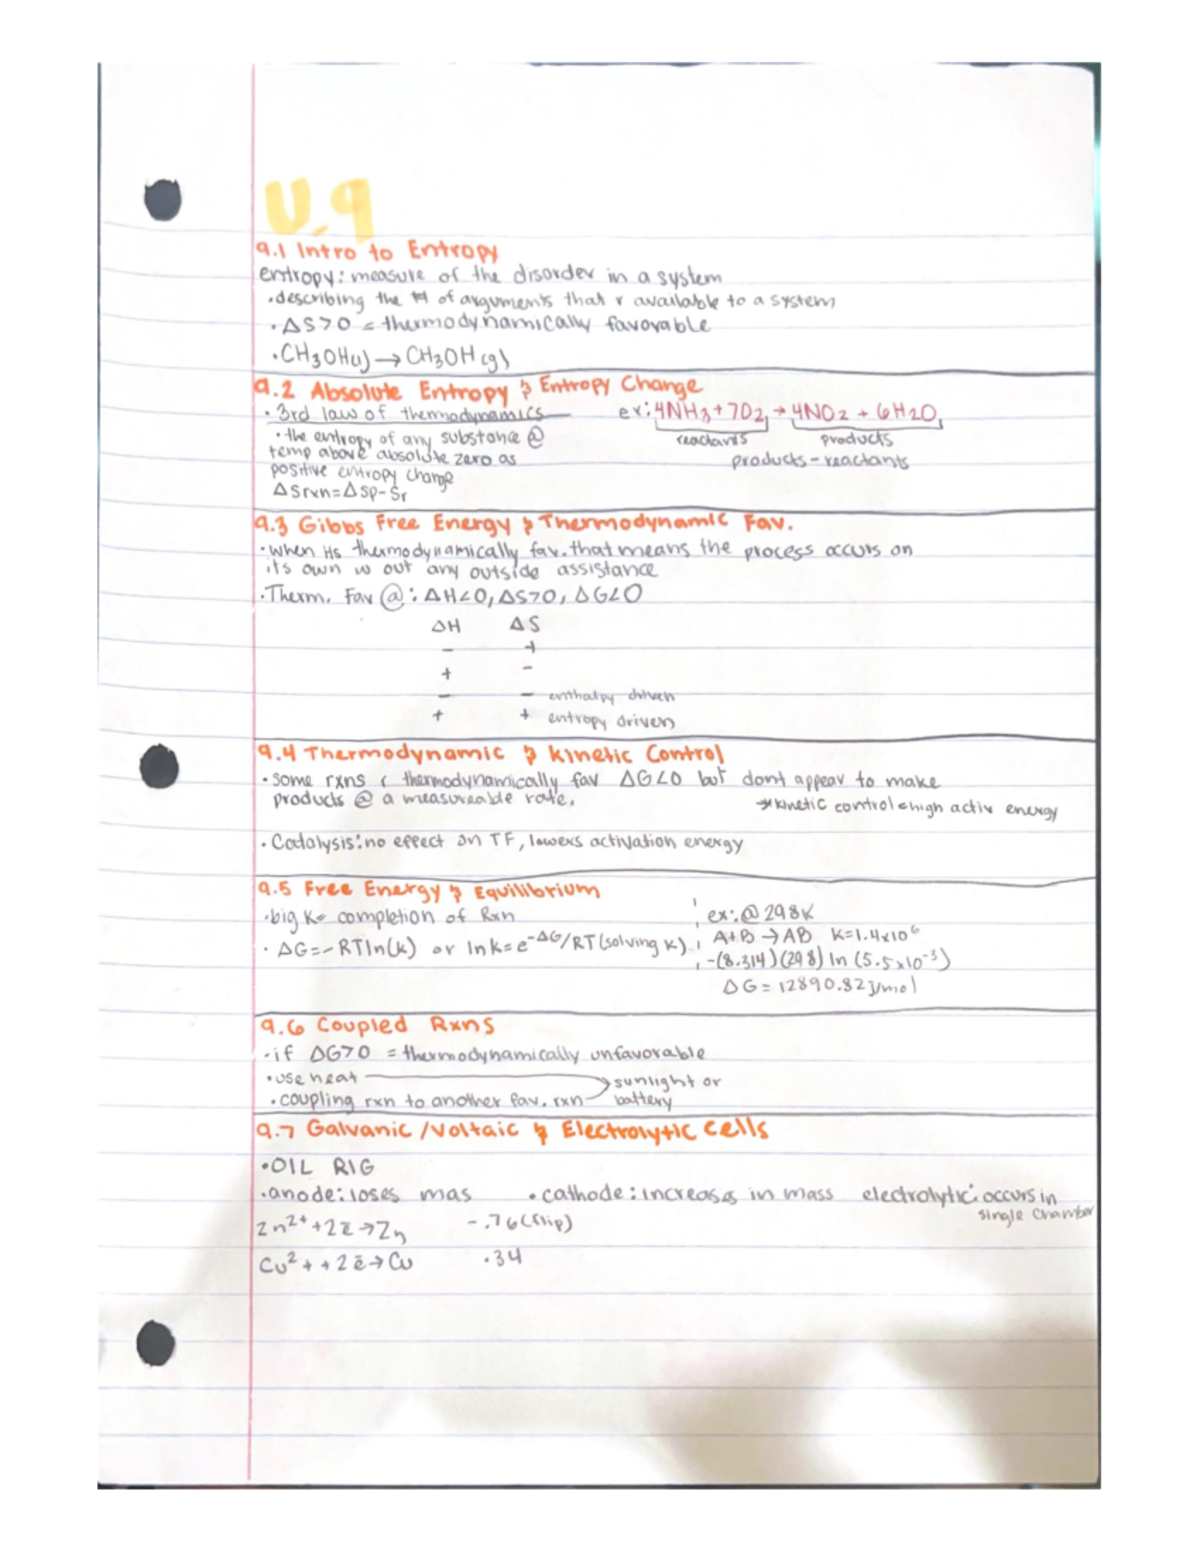 U.9
9.1 Intro to Entropy
entropy: measure of the disorder in a system
•describing the # of arguments that r available to a system
•ΔS>0 = thermodynamically favorable
•CH3OH(l)→CH3OH(g)
9.2 Absolute Entropy & Entropy Change
•3rd law of thermodynamics
•the entropy of any substance @
temp above absolute zero as
positive entropy change
ΔSrxn=ΔSp-Sr
ex: 4NH3+7O2→4NO2+6H2O
reactants products
products-reactants
9.3 Gibbs Free Energy & Thermodynamic Fav.
•when its thermodynamically fav. that means the process occurs on
its own w out any outside assistance
•Therm. Fav @: ΔH<0, ΔS>0, ΔG<0
ΔH ΔS
- +
+ -
- - enthalpy driven
+ + entropy driven
9.4 Thermodynamic & Kinetic Control
•some rxns r thermodynamically fav ΔG<0 but dont appear to make
products @ a measureable rate.
→kinetic control=high activ energy
•Catalysis: no effect on TF, lowers activation energy
9.5 Free Energy & Equilibrium
•big K= completion of Rxn
•ΔG=-RTln(k) or lnk=e^-ΔG/RT(solving k)
ex:@298K
A+B→AB K=1.4x10^6
-(8.314)(298) ln (5.5x10^-3)
ΔG=12890.82J/mol
9.6 Coupled Rxns
•if ΔG>0 = thermodynamically unfavorable
•use heat → sunlight or
•coupling rxn to another fav. rxn battery
9.7 Galvanic/Voltaic & Electrolytic Cells
•OIL RIG
•anode: loses mas •cathode: increases in mass electrolytic: occurs in
single chamber
Zn2+ +2e→Zn -.76(flip)
Cu2+ +2e→Cu .34